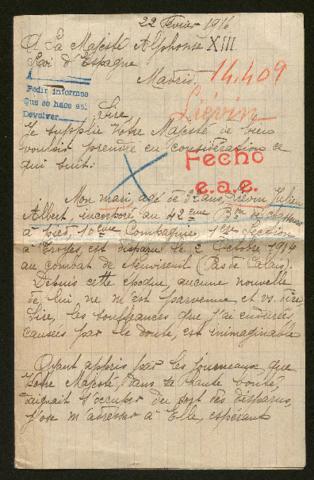 22 Février 1916
A Sa Majesté Alphonse XIII
Roi d'Espagne
Madrid
14.409
A
Pedir informes
Que se hace así
Devolver
Liévin
Sire
Je supplie Votre Majesté de bien
vouloir prendre en considération ce
qui suit:
Fecho
e.a.e.
Mon mari, agé de 32 ans, Liévin Julien
Albert, incorporé au 42eme Bon de chasseurs
à pied, 10eme Compagnie 1ere Section
à Troyes, est disparu le 2 Octobre 1914
au combat de (Pas de Calais).
Depuis cette époque, aucune nouvelle
de lui ne m'est parvenue et
Sire, les souffrances que j'ai endurées
causées par le doute, est inimaginable
Ayant appris par les journeaux, que
Votre Majesté, dans sa haute bonté,
daignait s'occuper du sort des disparus,
j'ose m'adresser à Elle, espérant